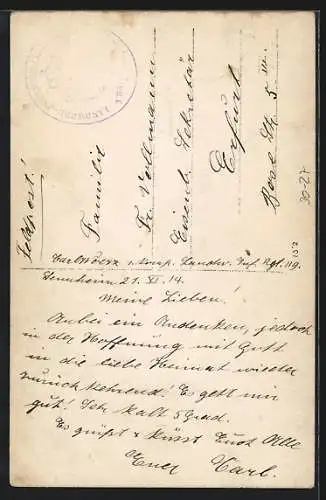 Feldpost!
Familie
Fr. Vollmann
Eisenb. Sekretär
Erfurt
Bose Str. 5 III.
30-27
Carl 1 Komp. Landw. Inf. Rgt. 119.
Sennheim 21. XI. 14.
Meine Lieben!
Anbei ein Andenken, jedoch
in der Hoffnung mit Gott
in die liebe Heimat wieder
zurück kehrend! Es geht mir
gut! Sehr kalt 5 Grad.
Es grüßt & küsst Euch Alle
Euer Carl.